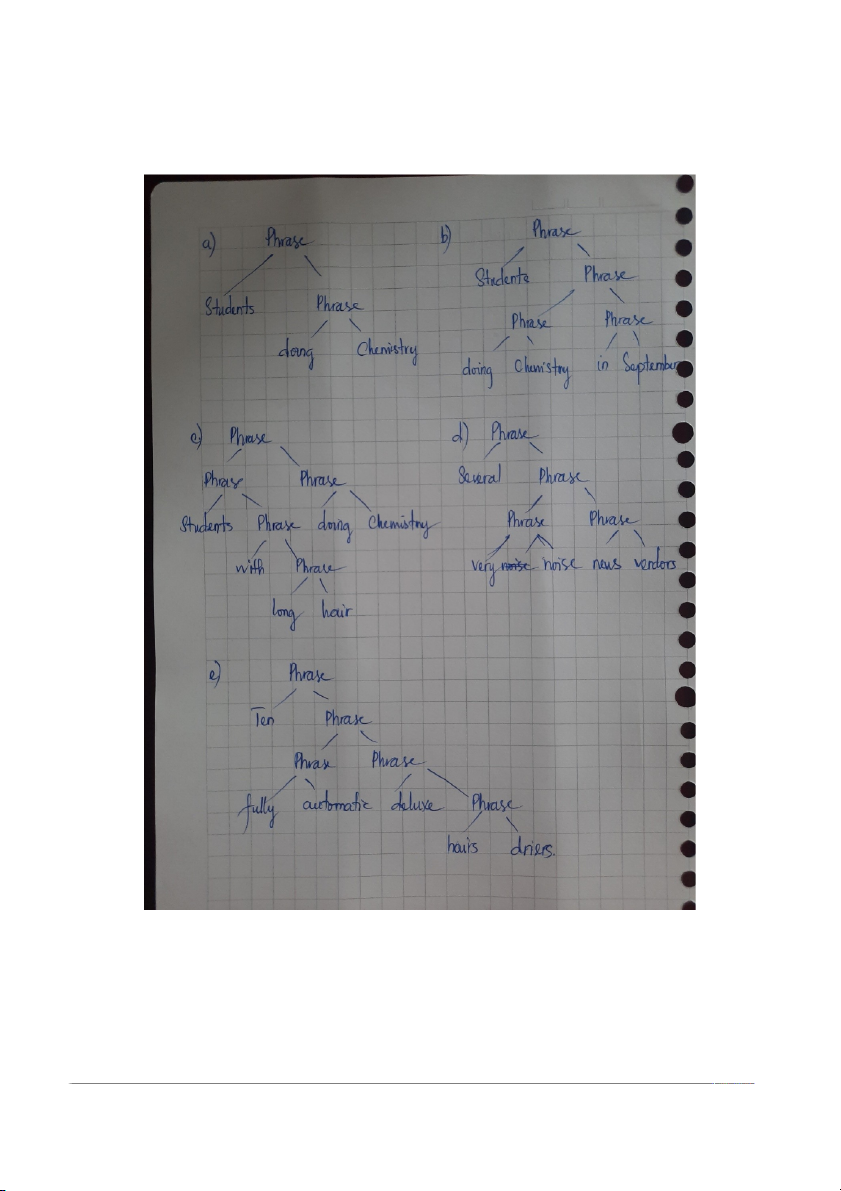 a) Phrase
Students Phrase
doing Chemistry
b) Phrase
Studente Phrase
Phrase Phrase
doing Chemistry in September
c) Phrase
Phrase Phrase
Students Phrase doing Chemistry
with Phrase
long hair
d) Phrase
Several Phrase
Phrase Phrase
very noise noise news vendors
e) Phrase
Ten Phrase
Phrase Phrase
fully automatic deluxe Phrase
hairs driers.